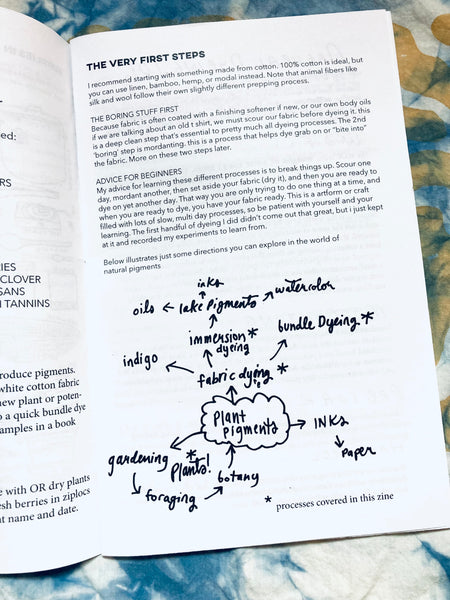 ed:
RS
IES
CLOVER
SANS
TANNINS
roduce pigments.
white cotton fabric
new plant or poten-
o a quick bundle dye
amples in a book
e with OR dry plants
esh berries in ziplocs
t name and date.
THE VERY FIRST STEPS
I recommend starting with something made from cotton. 100% cotton is ideal, but
you can use linen, bamboo, hemp, or modal instead. Note that animal fibers like
silk and wool follow their own slightly different prepping process.
THE BORING STUFF FIRST
Because fabric is often coated with a finishing softener if new, or our own body oils
if we are talking about an old t shirt, we must scour our fabric before dyeing it. this
is a deep clean step that's essential to pretty much all dyeing processes. The 2nd
'boring' step is mordanting. this is a process that helps dye grab on or "bite into"
the fabric. More on these two steps later.
ADVICE FOR BEGINNERS
My advice for learning these different processes is to break things up. Scour one
day, mordant another, then set aside your fabric (dry it), and then you are ready to
dye on yet another day. That way you are only trying to do one thing at a time, and
when you are ready to dye, you have your fabric ready. This is a artform or craft
filled with lots of slow, multi day processes, so be patient with yourself and your
learning. The first handful of dyeing I did didn't come out that great, but i just kept
at it and recorded my experiments to learn from.
Below illustrates just some directions you can explore in the world of
natural pigments
inks
oils ← lake pigments → watercolor
immersion *
dyeing
bundle Dyeing *
indigo
fabric dying *
Plant
pigments
→ INKS
paper
gardening
* Plants!
foraging
botany
* processes covered in this zine